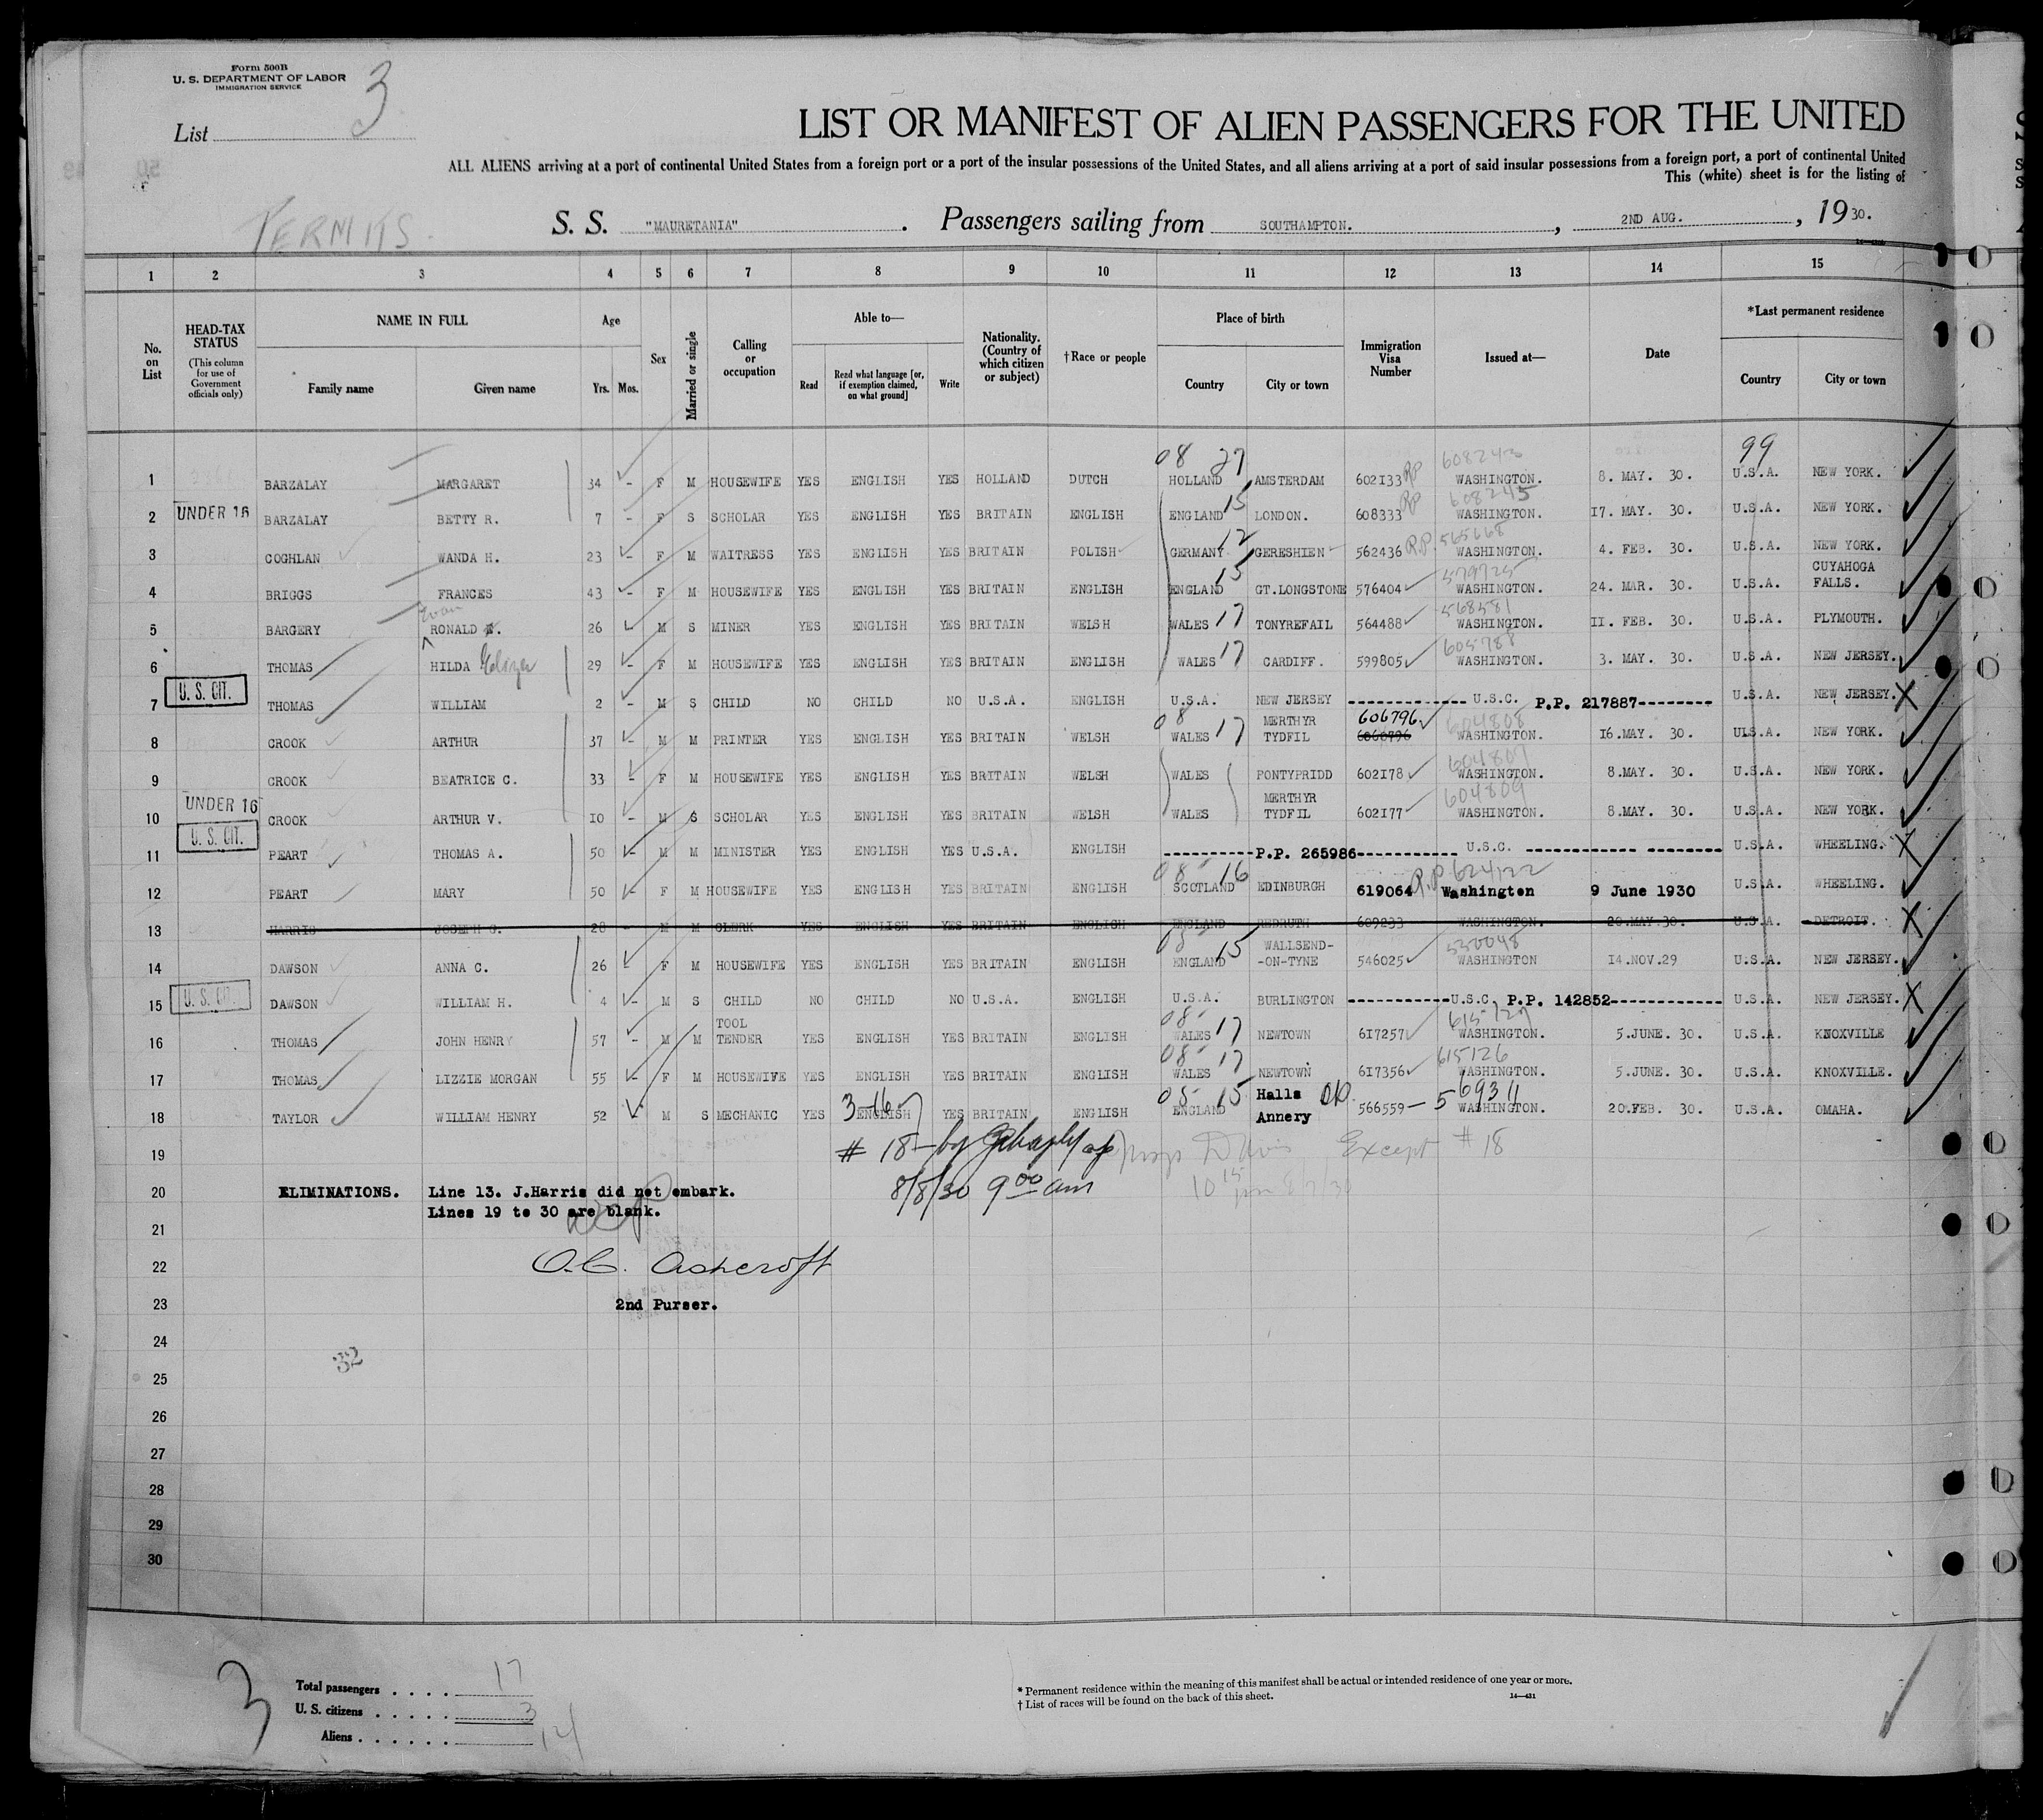 Form 500B
U. S. DEPARTMENT OF LABOR
IMMIGRATION SERVICE
3
List
LIST OR MANIFEST OF ALIEN PASSENGERS FOR THE UNITED
ALL ALIENS arriving at a port of continental United States from a foreign port or a port of the insular possessions of the United States, and all aliens arriving at a port of said insular possessions from a foreign port, a port of continental United
This (white) sheet is for the listing of
PERMITS.
S. S. "MAURETANIA" . Passengers sailing from SOUTHAMPTON. , 2ND AUG. , 1930.
1 2 3 4 5 6 7 8 9 10 11 12 13 14 15
No. on List
HEAD-TAX STATUS
(This column for use of Government officials only)
NAME IN FULL
Family name Given name
Age
Yrs. Mos.
Sex
Married or single
Calling or occupation
Able to—
Read Read what language [or, if exemption claimed, on what ground] Write
Nationality. (Country of which citizen or subject)
†Race or people
Place of birth
Country City or town
Immigration Visa Number
Issued at—
Date
*Last permanent residence
Country City or town
08 27 99
608243
1 BARZALAY MARGARET 34 - F M HOUSEWIFE YES ENGLISH YES HOLLAND DUTCH HOLLAND AMSTERDAM 602133 RP WASHINGTON. 8. MAY. 30. U.S.A. NEW YORK.
15 608245
2 UNDER 16 BARZALAY BETTY R. 7 - F S SCHOLAR YES ENGLISH YES BRITAIN ENGLISH ENGLAND LONDON. 608333 RP WASHINGTON. 17. MAY. 30. U.S.A. NEW YORK.
12 565668
3 COGHLAN WANDA H. 23 - F M WAITRESS YES ENGLISH YES BRITAIN POLISH GERMANY GERESHIEN 562436 R.P. WASHINGTON. 4. FEB. 30. U.S.A. NEW YORK.
15 579725
4 BRIGGS FRANCES 43 - F M HOUSEWIFE YES ENGLISH YES BRITAIN ENGLISH ENGLAND GT.LONGSTONE 576404 WASHINGTON. 24. MAR. 30. U.S.A. CUYAHOGA FALLS.
Evan 17 568581
5 BARGERY RONALD . 26 - M S MINER YES ENGLISH YES BRITAIN WELSH WALES TONYREFAIL 564488 WASHINGTON. 11. FEB. 30. U.S.A. PLYMOUTH.
17 605788
6 THOMAS HILDA Eliza 29 - F M HOUSEWIFE YES ENGLISH YES BRITAIN ENGLISH WALES CARDIFF. 599805 WASHINGTON. 3. MAY. 30. U.S.A. NEW JERSEY.
7 U. S. CIT. THOMAS WILLIAM 2 - M S CHILD NO CHILD NO U.S.A. ENGLISH U.S.A. NEW JERSEY ------------- U.S.C. P.P. 217887-------- U.S.A. NEW JERSEY. X
08 17 606796 604808
8 CROOK ARTHUR 37 - M M PRINTER YES ENGLISH YES BRITAIN WELSH WALES MERTHYR TYDFIL 6060796 WASHINGTON. 16. MAY. 30. U.S.A. NEW YORK.
604807
9 CROOK BEATRICE C. 33 - F M HOUSEWIFE YES ENGLISH YES BRITAIN WELSH WALES PONTYPRIDD 602178 WASHINGTON. 8.MAY. 30. U.S.A. NEW YORK.
604809
10 UNDER 16 CROOK ARTHUR V. 10 - M S SCHOLAR YES ENGLISH YES BRITAIN WELSH WALES MERTHYR TYDFIL 602177 WASHINGTON. 8.MAY. 30. U.S.A. NEW YORK.
11 U. S. CIT. PEART THOMAS A. 50 - M M MINISTER YES ENGLISH YES U.S.A. ENGLISH ----------P.P. 265986----------- U.S.C. ------------ -------- U.S.A. WHEELING. X
08 16 R.P 624122
12 PEART MARY 50 - F M HOUSEWIFE YES ENGLISH YES BRITAIN ENGLISH SCOTLAND EDINBURGH 619064 Washington 9 June 1930 U.S.A. WHEELING.
13 HARRIS JOSEPH G. 28 - M M CLERK YES ENGLISH YES BRITAIN ENGLISH ENGLAND REDRUTH 609233 WASHINGTON. 20.MAY.30. U.S.A. DETROIT. X
08 15 530048
14 DAWSON ANNA C. 26 - F M HOUSEWIFE YES ENGLISH YES BRITAIN ENGLISH ENGLAND WALLSEND- -ON-TYNE 546025 WASHINGTON 14.NOV.29 U.S.A. NEW JERSEY.
15 U. S. CIT. DAWSON WILLIAM H. 4 - M S CHILD NO CHILD NO U.S.A. ENGLISH U.S.A. BURLINGTON ------------U.S.C. P.P. 142852------------- U.S.A. NEW JERSEY. X
08 17
16 THOMAS JOHN HENRY 57 - M M TOOL TENDER YES ENGLISH YES BRITAIN ENGLISH WALES NEWTOWN 617257 WASHINGTON. 5.JUNE. 30. U.S.A. KNOXVILLE
08 17 615126
17 THOMAS LIZZIE MORGAN 55 - F M HOUSEWIFE YES ENGLISH YES BRITAIN ENGLISH WALES NEWTOWN 617356 WASHINGTON. 5.JUNE. 30. U.S.A. KNOXVILLE.
3-16 08 15 569311
18 TAYLOR WILLIAM HENRY 52 M S MECHANIC YES ENGLISH YES BRITAIN ENGLISH ENGLAND Halls Annery 566559 WASHINGTON. 20.FEB. 30. U.S.A. OMAHA.
19 # 18 - by Davis Except # 18
20 ELIMINATIONS. Line 13. J.Harris did not embark. 8/8/30 9 00 am 10 15
Lines 19 to 30 are blank.
21
22 O.C. Ashcroft
23 2nd Purser.
24
32
25
26
27
28
29
30
3
Total passengers . . . . 17
U. S. citizens . . . . . 3
Aliens . . . . . . 14
* Permanent residence within the meaning of this manifest shall be actual or intended residence of one year or more.
† List of races will be found on the back of this sheet. 14—431